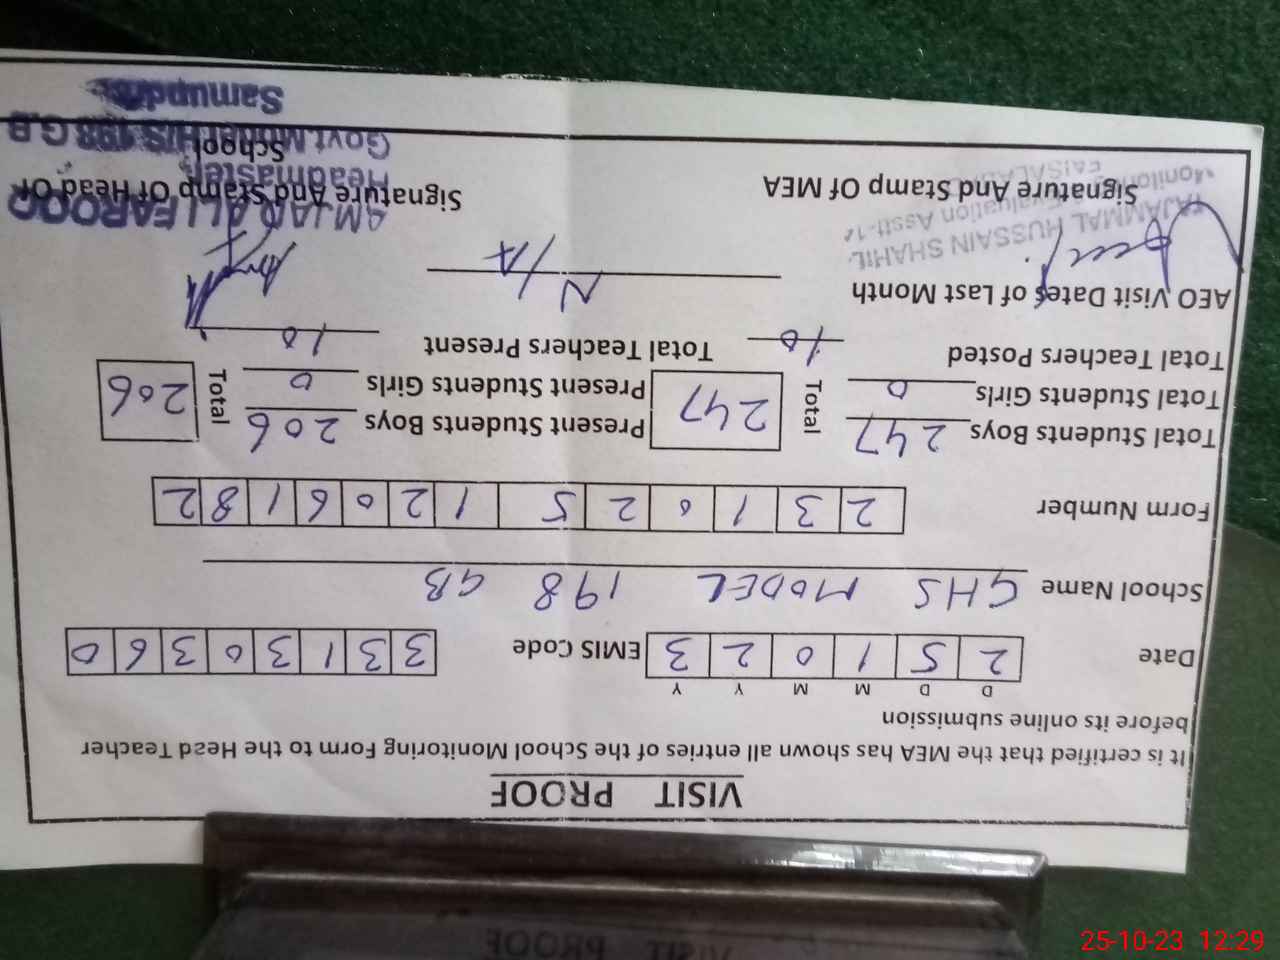 VISIT PROOF
It is certified that the MEA has shown all entries of the School Monitoring Form to the Head Teacher
before its online submission
D D M M Y Y
Date 2 5 1 0 2 3 EMIS Code 3 3 1 3 0 3 6 0
School Name GHS MODEL 198 GB
Form Number 2 3 1 0 2 5 1 2 0 6 1 8 2
Total Students Boys 247 Total 247 Present Students Boys 206 Total 206
Total Students Girls 0 Present Students Girls 0
Total Teachers Posted 10 Total Teachers Present 10
AEO Visit Dates of Last Month N/A
TAJAMMAL HUSSAIN SHAHIL
Monitoring & Evaluation Asstt-14
FAISALABAD
Signature And Stamp Of MEA
Signature And Stamp Of Head Of
School
AMJAD ALI FAROOQ
Headmaster
Govt.Model H/S 198 G.B
Samundri
VISIT PROOF
25-10-23 12:29